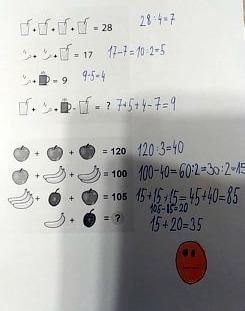 + + + = 28 28:4=7
+ + = 17 17-7=10:2=5
+ = 9 9-5=4
+ + - = ? 7+5+4-7=9
+ + = 120 120:3=40
+ + = 100 100-40=60:2=30:2=15
+ + = 105 15+15+15=45+40=85
105-85=20
+ = ? 15+20=35